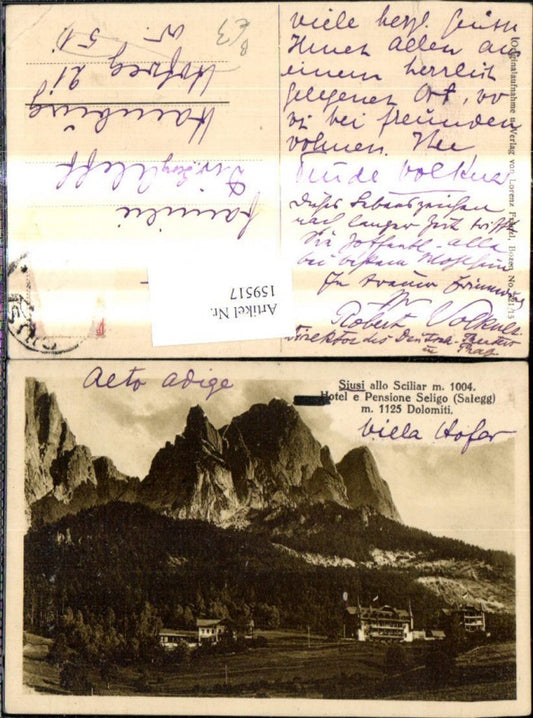 viele herzl. Grüße
Ihnen allen aus
einem herrlich
gelegenen Ort, wo
wir bei Freunden
wohnen. Ihre
Dieses Lebenszeichen
nach langer Zeit trifft
Sie hoffentl. alle
bei bestem
In treuer Erinnerung
Ihr
Robert Volkner
Direktor des Deutsch. Theater
in Prag
Originalaufnahme u. Verlag von Lorenz Fränzl, Bozen No.
Familie
Hamburg
Hofweg 21
Artikel Nr.
159517
Alto Adige
Siusi allo Sciliar m. 1004.
Hotel e Pensione Seligo (Salegg)
m. 1125 Dolomiti.
Villa Hofer